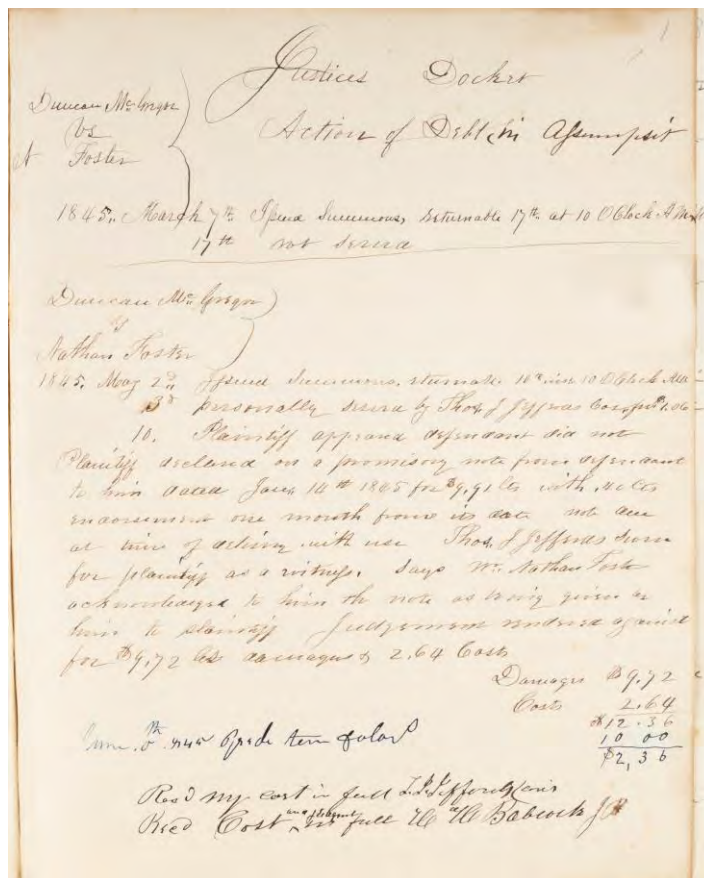 1
Justices Docket
Duncan McGregor
vs
N Foster
Action of Debt, in Assumpsit
1845. March 7th Issued Summons, returnable 17th at 10 OClock A M
17th not served
Duncan McGregor
vs
Nathan Foster
1845. May 2d Issued Summons. returnable 10th inst 10 OClock AM
3d personally served by Thos J Jeffords Cons
10. Plaintiff appeared defendant did not
Plaintiff declared on a promisory note from defendant
to him dated Jany 14th 1845 for $9,91 cts with cts
endorsement one month from its date not due
at time of with use Thos J Jeffords sworn
for plaintiff as a witness. Says Mr. Nathan Foster
acknowledged to him the note as being given by
him to plaintiff Judgement rendered against
for $9,72 cts damages & 2.64 Costs
Damages $9,72
Costs 2.64
$12.36
10 00
$2,36
June
Recd my cost in full T. J. Jeffords Cons
Recd Cost in full H H Babcock J P